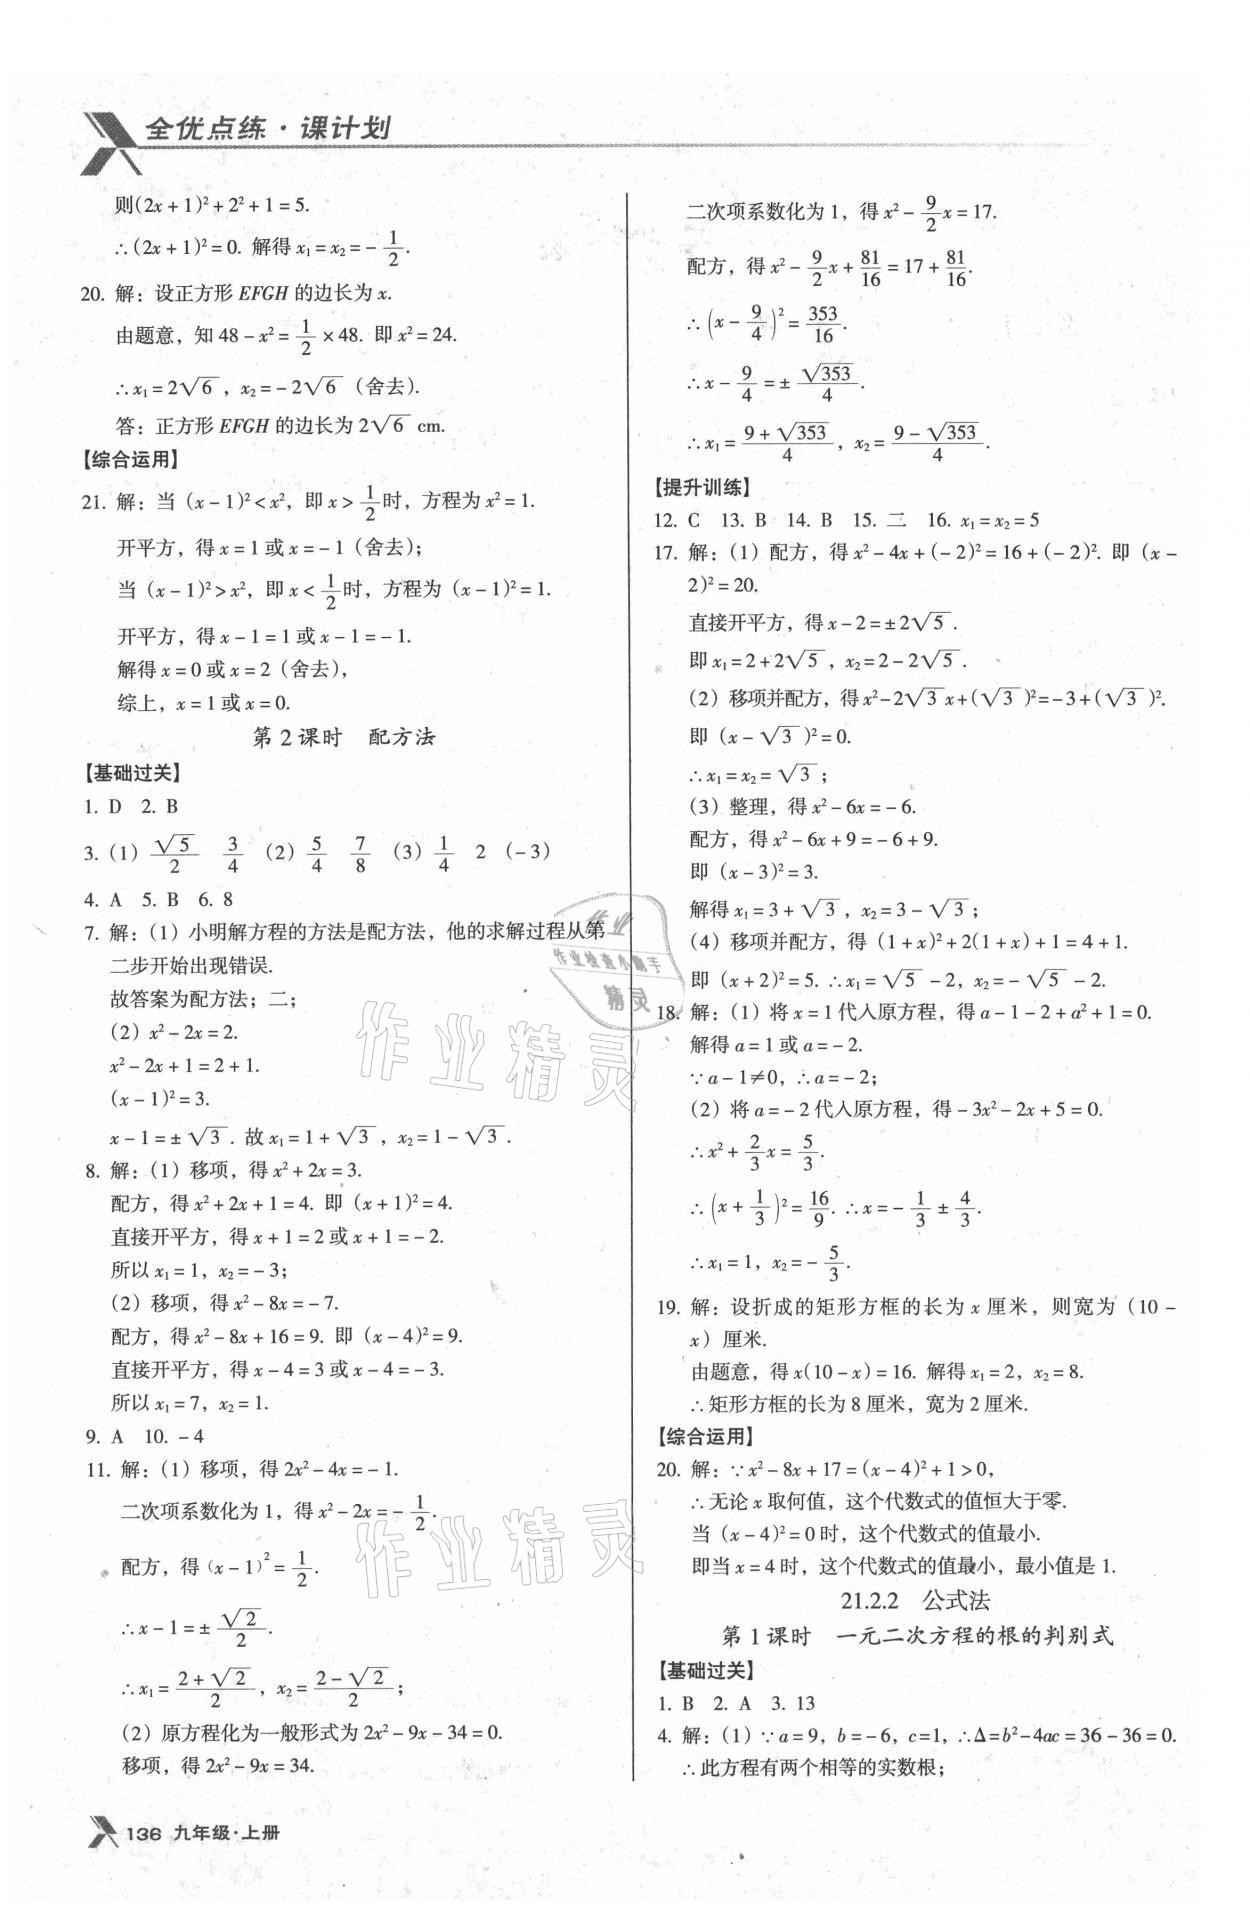 全优点练·课计划
则(2x+1)²+2²+1=5.
∴(2x+1)²=0. 解得 x₁=x₂=-1/2.
20. 解：设正方形 EFGH 的边长为 x.
由题意，知 48-x²=1/2×48. 即 x²=24.
∴x₁=2√6，x₂=-2√6（舍去）.
答：正方形 EFGH 的边长为 2√6 cm.
【综合运用】
21. 解：当（x-1）²<x²，即 x>1/2时，方程为 x²=1.
开平方，得 x=1 或 x=-1（舍去）；
当（x-1）²>x²，即 x<1/2时，方程为（x-1）²=1.
开平方，得 x-1=1 或 x-1=-1.
解得 x=0 或 x=2（舍去），
综上，x=1 或 x=0.
第 2 课时 配方法
【基础过关】
1. D 2. B
3.（1）√5/2 3/4 （2）5/4 7/8 （3）1/4 2 （-3）
4. A 5. B 6. 8
7. 解：（1）小明解方程的方法是配方法，他的求解过程从第
二步开始出现错误.
故答案为配方法；二；
（2）x²-2x=2.
x²-2x+1=2+1.
（x-1）²=3.
x-1=±√3. 故 x₁=1+√3，x₂=1-√3.
8. 解：（1）移项，得 x²+2x=3.
配方，得 x²+2x+1=4. 即（x+1）²=4.
直接开平方，得 x+1=2 或 x+1=-2.
所以 x₁=1，x₂=-3；
（2）移项，得 x²-8x=-7.
配方，得 x²-8x+16=9. 即（x-4）²=9.
直接开平方，得 x-4=3 或 x-4=-3.
所以 x₁=7，x₂=1.
9. A 10. -4
11. 解：（1）移项，得 2x²-4x=-1.
二次项系数化为 1，得 x²-2x=-1/2.
配方，得（x-1）²=1/2.
∴x-1=±√2/2.
∴x₁=(2+√2)/2，x₂=(2-√2)/2；
（2）原方程化为一般形式为 2x²-9x-34=0.
移项，得 2x²-9x=34.
二次项系数化为 1，得 x²-9/2x=17.
配方，得 x²-9/2x+81/16=17+81/16.
∴(x-9/4)²=353/16.
∴x-9/4=±√353/4.
∴x₁=(9+√353)/4，x₂=(9-√353)/4.
【提升训练】
12. C 13. B 14. B 15. 二 16. x₁=x₂=5
17. 解：（1）配方，得 x²-4x+(-2)²=16+(-2)². 即（x-
2)²=20.
直接开平方，得 x-2=±2√5.
即 x₁=2+2√5，x₂=2-2√5.
（2）移项并配方，得 x²-2√3x+(√3)²=-3+(√3)².
即（x-√3）²=0.
∴x₁=x₂=√3；
（3）整理，得 x²-6x=-6.
配方，得 x²-6x+9=-6+9.
即（x-3）²=3.
解得 x₁=3+√3，x₂=3-√3；
（4）移项并配方，得（1+x)²+2(1+x)+1=4+1.
即（x+2)²=5. ∴x₁=√5-2，x₂=-√5-2.
18. 解：（1）将 x=1 代入原方程，得 a-1-2+a²+1=0.
解得 a=1 或 a=-2.
∵a-1≠0，∴a=-2；
（2）将 a=-2 代入原方程，得 -3x²-2x+5=0.
∴x²+2/3x=5/3.
∴(x+1/3)²=16/9. ∴x=-1/3±4/3.
∴x₁=1，x₂=-5/3.
19. 解：设折成的矩形方框的长为 x 厘米，则宽为（10-
x）厘米.
由题意，得 x(10-x)=16. 解得 x₁=2，x₂=8.
∴矩形方框的长为 8 厘米，宽为 2 厘米.
【综合运用】
20. 解：∵x²-8x+17=(x-4)²+1>0，
∴无论 x 取何值，这个代数式的值恒大于零.
当（x-4)²=0 时，这个代数式的值最小.
即当 x=4 时，这个代数式的值最小，最小值是 1.
21.2.2 公式法
第 1 课时 一元二次方程的根的判别式
【基础过关】
1. B 2. A 3. 13
4. 解：（1）∵a=9，b=-6，c=1，∴Δ=b²-4ac=36-36=0.
∴此方程有两个相等的实数根；
136 九年级·上册
作业
作业检查小助手
精灵
作业精灵
作业精灵